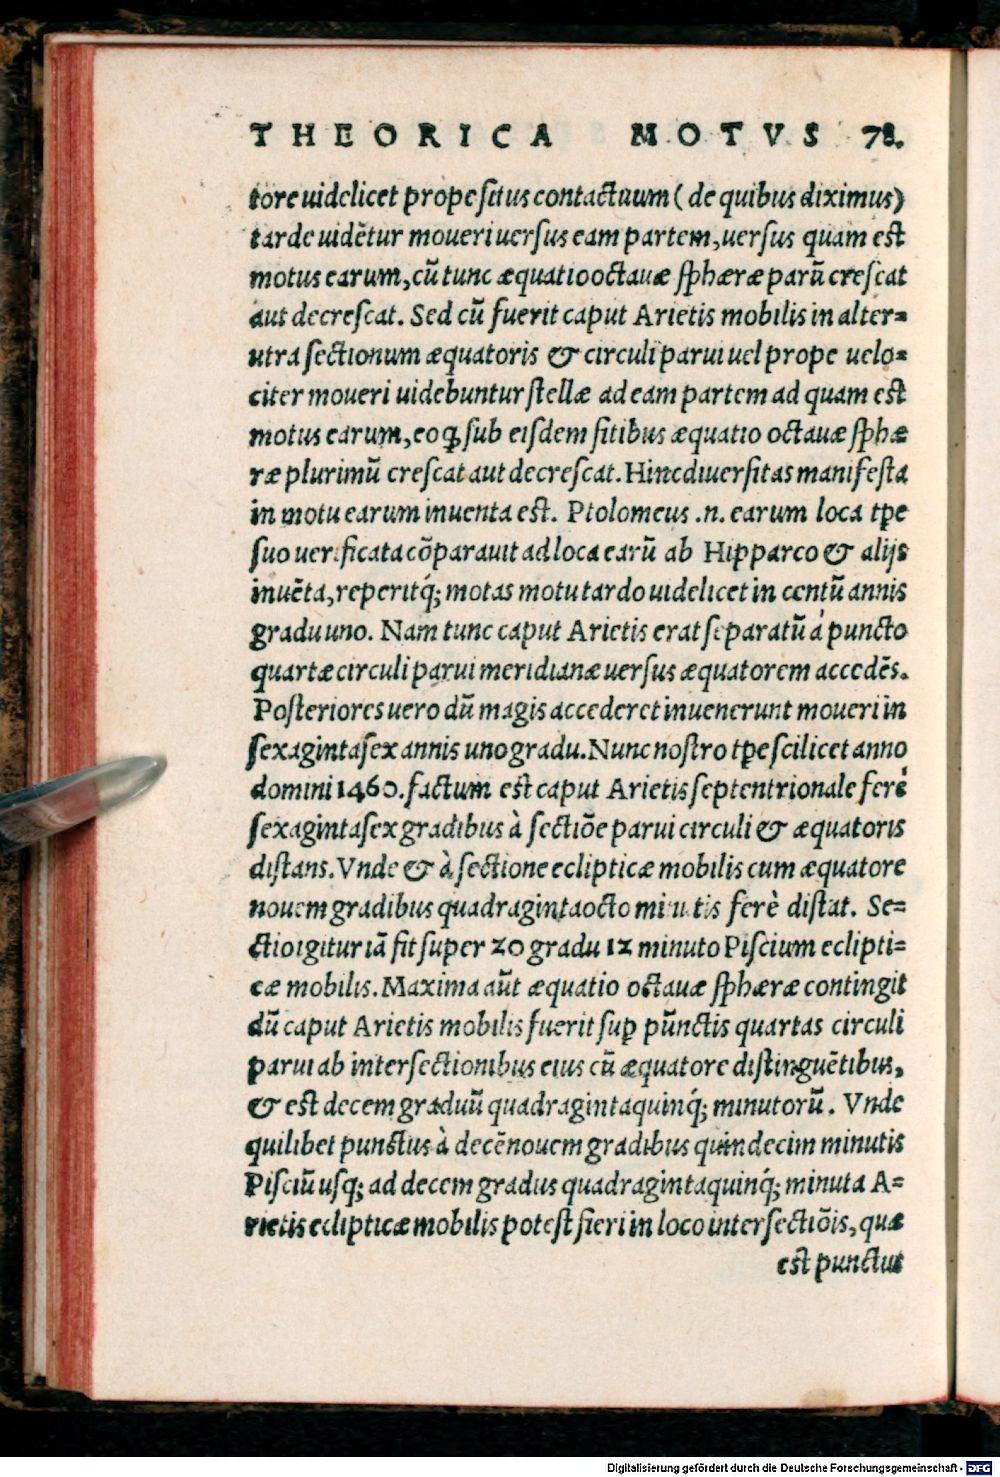 THEORICA MOTVS 78.
tore uidelicet prope situs contactuum ( de quibus diximus)
tarde uidẽtur moueri uersus eam partem, uersus quam est
motus earum, cũ tunc æquatio octauæ sphæræ parũ crescat
aut decrescat. Sed cũ fuerit caput Arietis mobilis in alter-
utra sectionum æquatoris & circuli parui uel prope uelo-
citer moueri uidebuntur stellæ ad eam partem ad quam est
motus earum, eo ꝙ sub eisdem sitibus æquatio octauæ sphæ
ræ plurimũ crescat aut decrescat. Hinc diuersitas manifesta
in motu earum inuenta est. Ptolomeus .n. earum loca tpe
suo uerificata cõparauit ad loca earũ ab Hipparco & alijs
inuẽta, reperitq́; motas motu tardo uidelicet in centũ annis
gradu uno. Nam tunc caput Arietis erat separatũ á puncto
quartæ circuli parui meridianæ uersus æquatorem accedẽs.
Posteriores uero dũ magis accederet inuenerunt moueri in
sexagintasex annis uno gradu. Nunc nostro tpe scilicet anno
domini 1460. factum est caput Arietis septentrionale ferè
sexagintasex gradibus à sectiõe parui circuli & æquatoris
distans. Vnde & à sectione eclipticæ mobilis cum æquatore
nouem gradibus quadragintaocto minutis ferè distat. Se-
ctio igitur iã fit super 20 gradu 12 minuto Piscium eclipti-
cæ mobilis. Maxima aũt æquatio octauæ sphæræ contingit
dũ caput Arietis mobilis fuerit suꝑ pũnctis quartas circuli
parui ab intersectionibus eius cũ æquatore distinguẽtibus,
& est decem graduũ quadragintaquinq́; minutorũ. Vnde
quilibet punctus à decẽnouem gradibus quindecim minutis
Pisciũ usq́; ad decem gradus quadragintaquinq́; minuta A-
rietis eclipticæ mobilis potest fieri in loco intersectiõis, quæ
est punctus
Digitalisierung gefördert durch die Deutsche Forschungsgemeinschaft - DFG